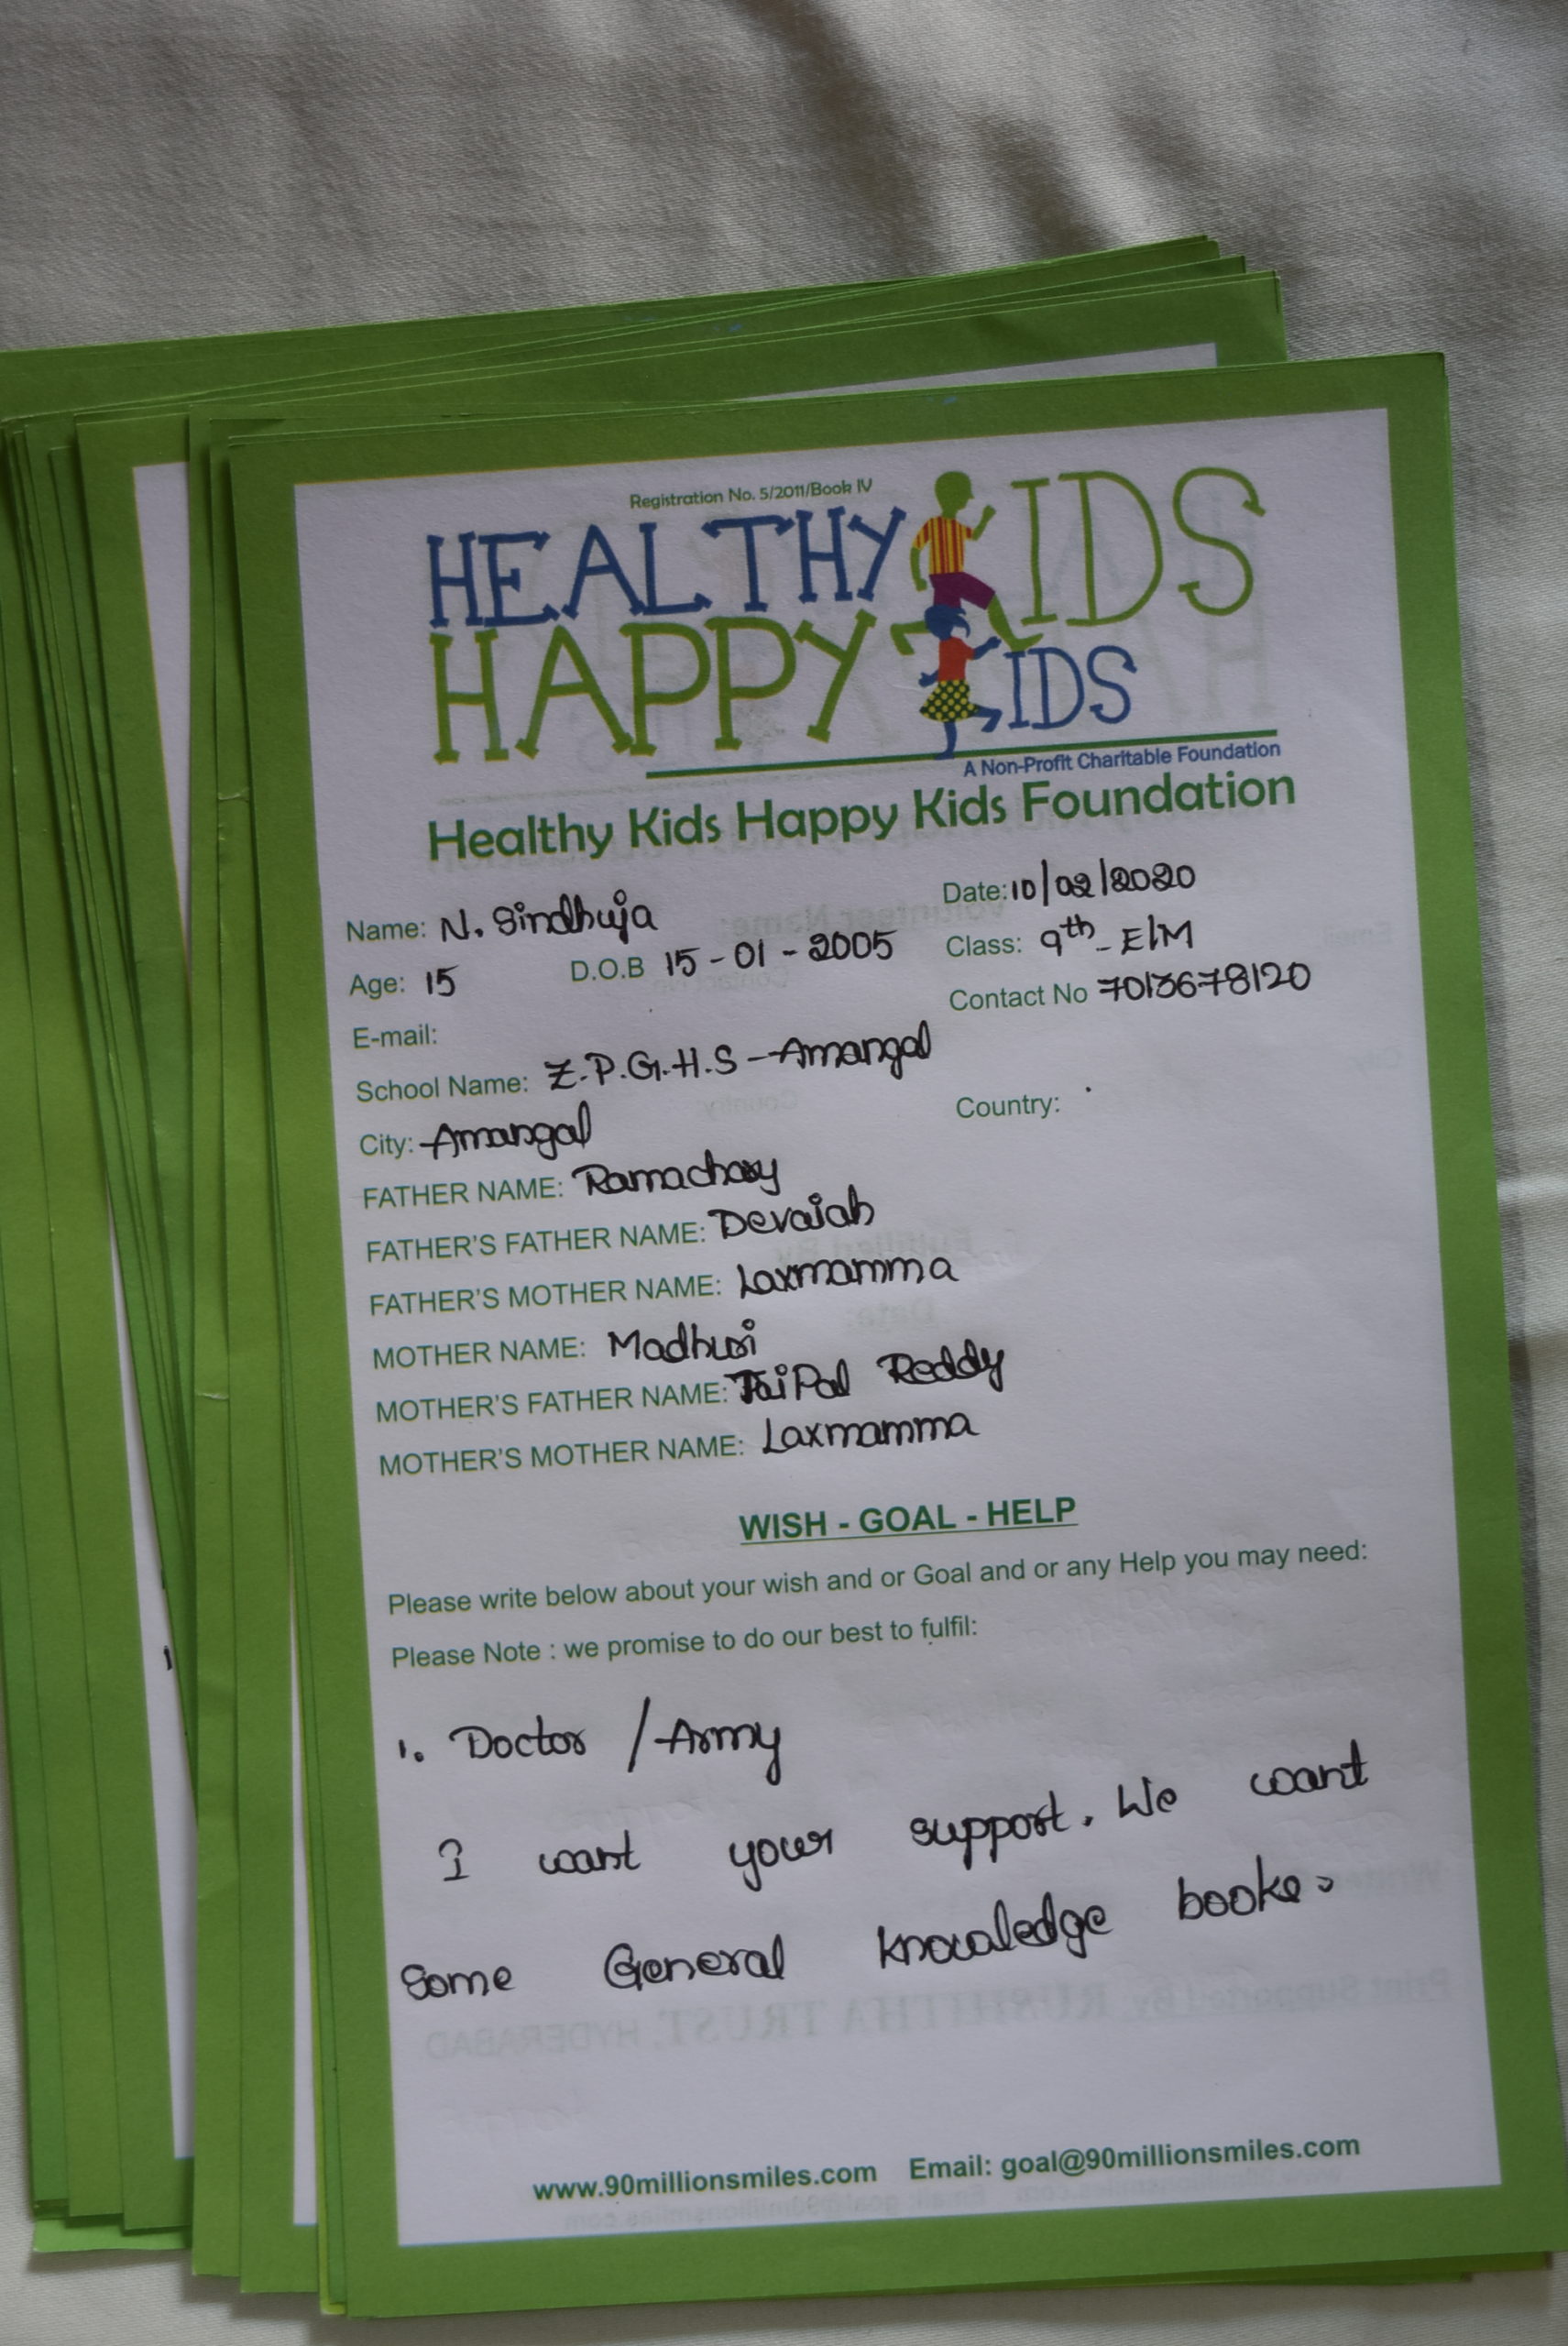 Registration No. 5/2011/Book IV
HEALTHY KIDS
HAPPY KIDS
A Non-Profit Charitable Foundation
Healthy Kids Happy Kids Foundation
Name: N. Sindhuja Date: 10/02/2020
Age: 15 D.O.B 15-01-2005 Class: 9th - E/M
E-mail: Contact No 7013678120
School Name: Z.P.G.H.S - Amangal
City: Amangal Country:
FATHER NAME: Ramachary
FATHER'S FATHER NAME: Devaiah
FATHER'S MOTHER NAME: Laxmamma
MOTHER NAME: Madhuri
MOTHER'S FATHER NAME: JaiPal Reddy
MOTHER'S MOTHER NAME: Laxmamma
WISH - GOAL - HELP
Please write below about your wish and or Goal and or any Help you may need:
Please Note : we promise to do our best to fulfil:
1. Doctor / Army
I want your support. We want
some General knowledge books
www.90millionsmiles.com Email: goal@90millionsmiles.com